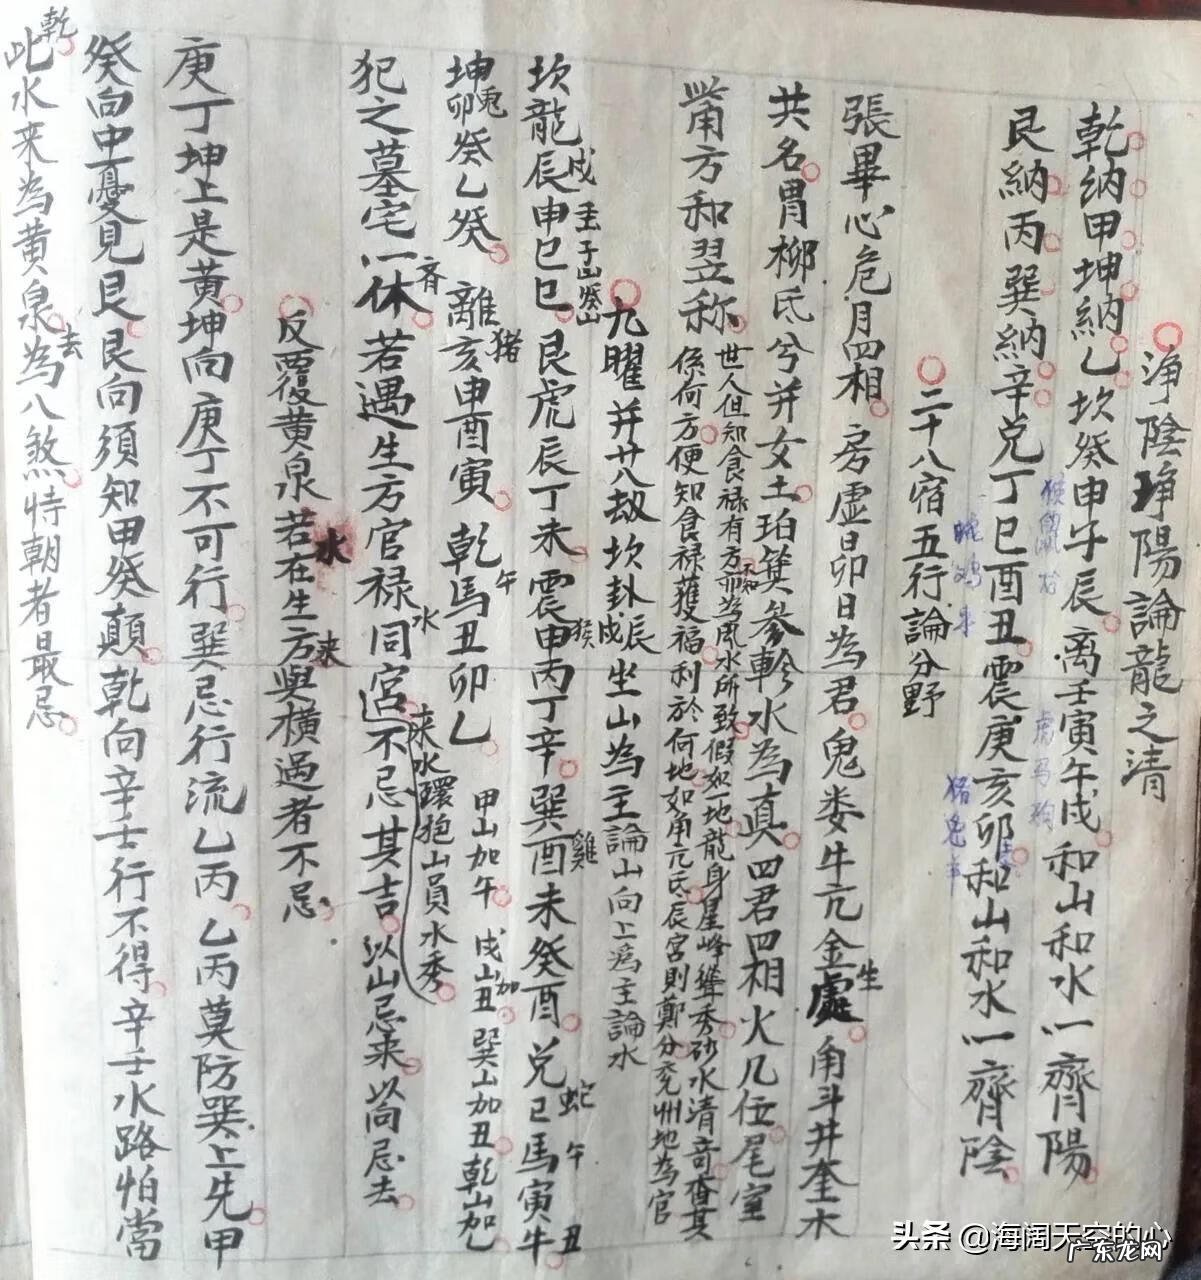 淨陰琤陽論龍之清
乾納甲坤納乙坎癸申子辰离壬寅午戌和山和水一齊陽
艮納丙巽納辛兑丁巳酉丑震庚亥卯和山和水一齊陰
二十八宿五行論分野
張畢心危月四相房虚日卯日為君鬼娄牛亢金處生角斗井奎木
共名胃柳氐兮并女土珀箕參軫水為真四君四相火几任尾室
觜方和翌称
世人但知食禄有方而不知為風水所致假如一地龍身星峰聳秀砂水清奇查其
係何方便知食禄獲福利於何地如角亢氐辰宮則鄭分兖州地為官
九曜并廿八劫坎卦辰戌坐山為主論山向上為主論水
坎龍辰戌申巳巳壬子山癸山艮虎辰丁未震申猴丙丁辛巽酉雞未癸酉兑巳蛇馬午寅牛丑
坤兎卯癸乙癸離猪亥申酉寅乾馬午丑卯乙甲山加午戌山加丑巽山加丑乾山加
犯之墓宅一斉休若遇生方官禄水同宮迊不忌其吉以山忌来以向忌去
来水環抱山員水秀
反覆黄泉若在生方水来與横過者不忌
庚丁坤上是黄坤向庚丁不可行巽忌行流乙丙乙丙莫防巽上先甲
癸向中憂見艮艮向須知甲癸顛乾向辛壬行不得辛壬水路怕當
乾
此水来為黄泉去為八煞特朝者最忌
猴鼠龙
虎马狗
蛇鸡牛
猪兔羊
头条 @海阔天空的心
广东龙网